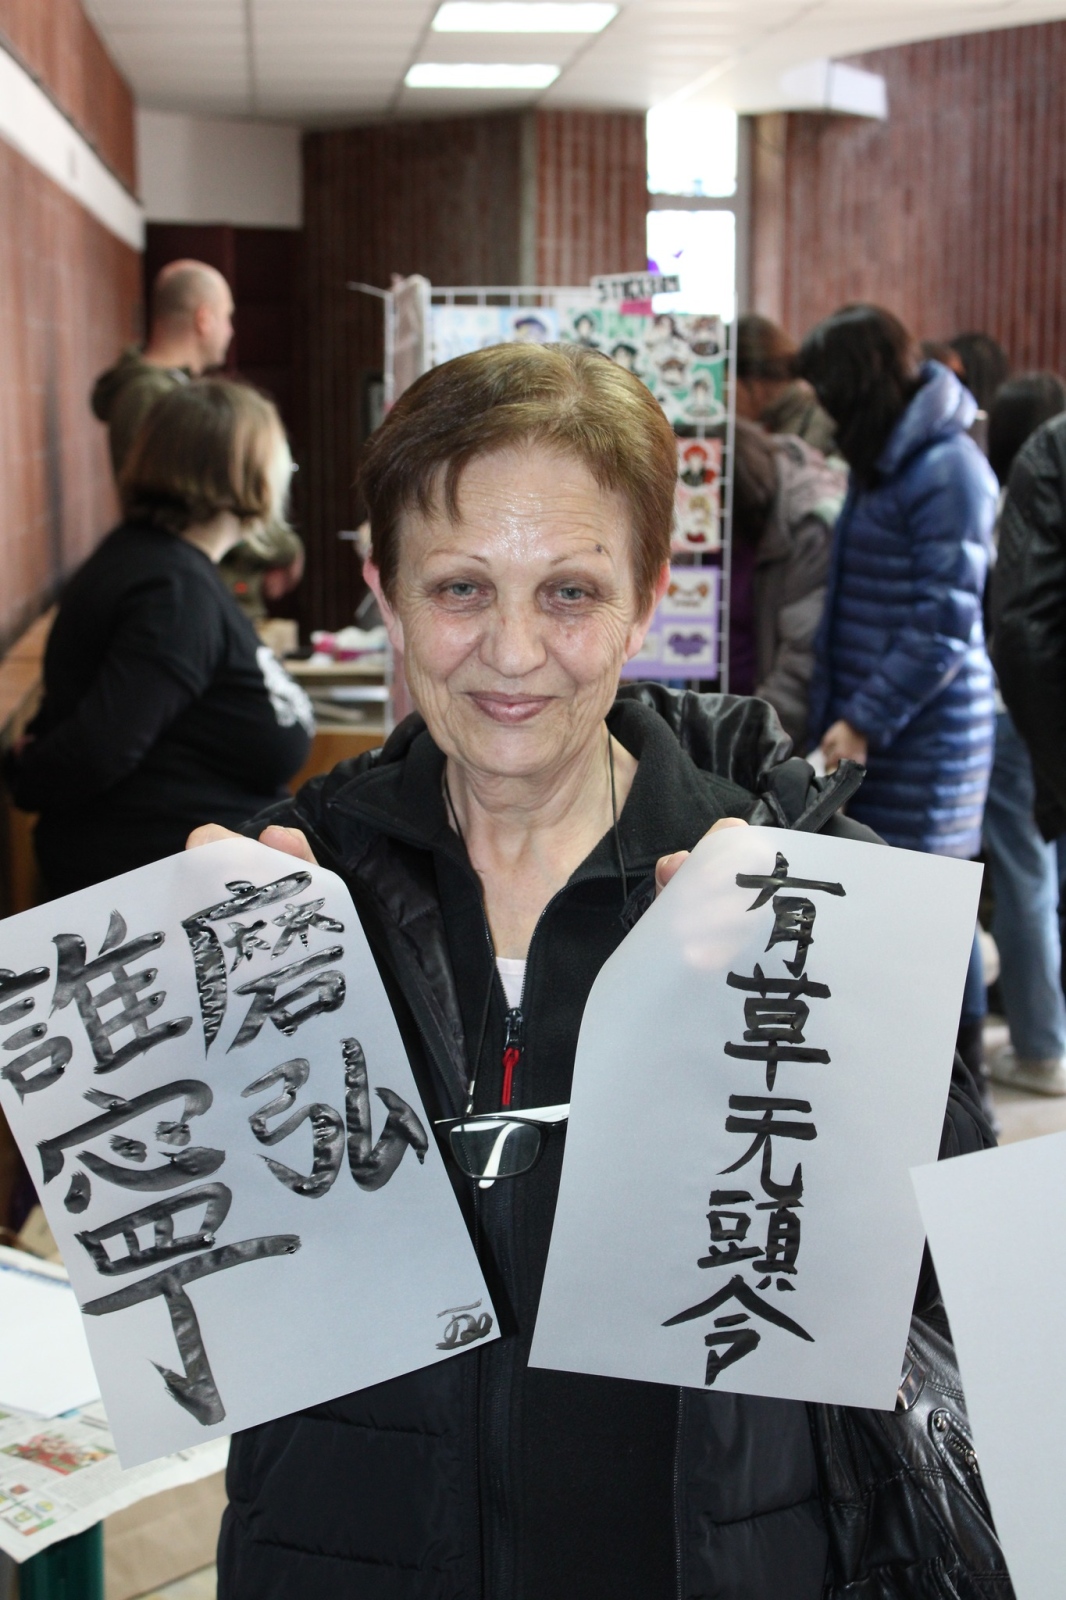 磨弘
誰寧
有草无頭令